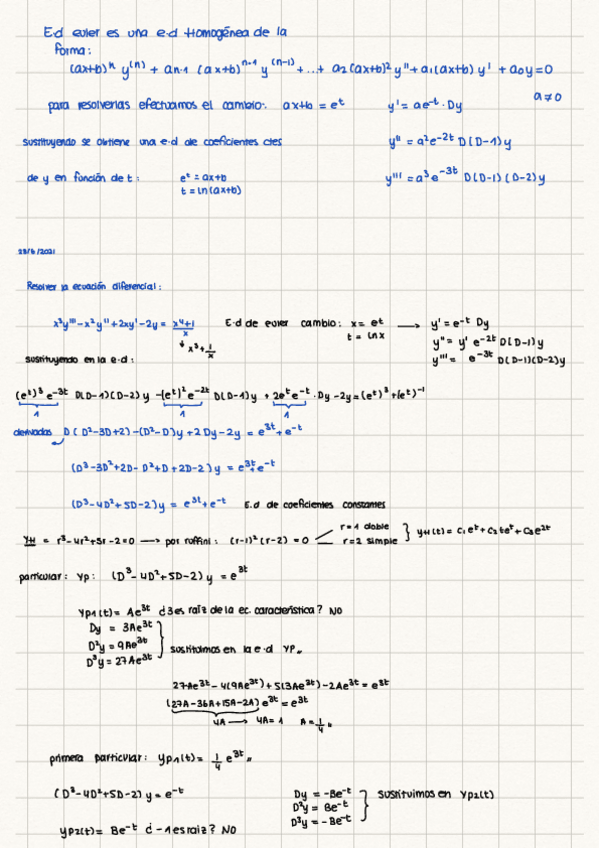 E.d euler es una e.d Homogénea de la
forma:
(ax+b)ⁿ y⁽ⁿ⁾ + aₙ₋₁ (ax+b)ⁿ⁻¹ y⁽ⁿ⁻¹⁾ + ... + a₂(ax+b)² y'' + a₁(ax+b) y' + a₀y = 0
a ≠ 0
para resolverlas efectuamos el cambio: ax+b = eᵗ y' = ae⁻ᵗ · Dy
sustituyendo se obtiene una e.d de coeficientes ctes y'' = a²e⁻²ᵗ D(D-1)y
de y en función de t: eᵗ = ax+b y''' = a³e⁻³ᵗ D(D-1)(D-2)y
t = ln(ax+b)
28/6/2021
Resolver la ecuación diferencial:
x³y''' - x²y'' + 2xy' - 2y = x⁴+1/x E.d de euler cambio: x = eᵗ → y' = e⁻ᵗ Dy
↓ x³ + 1/x t = lnx y'' = y' e⁻²ᵗ D(D-1)y
sustituyendo en la e.d: y''' = e⁻³ᵗ D(D-1)(D-2)y
(eᵗ)³ e⁻³ᵗ D(D-1)(D-2)y - (eᵗ)² e⁻²ᵗ D(D-1)y + 2eᵗe⁻ᵗ · Dy - 2y = (eᵗ)³ + (eᵗ)⁻¹
1 1 1
derivadas D(D²-3D+2) - (D²-D)y + 2Dy - 2y = e³ᵗ + e⁻ᵗ
(D³-3D²+2D-D²+D+2D-2)y = e³ᵗ + e⁻ᵗ
(D³-4D²+5D-2)y = e³ᵗ + e⁻ᵗ E.d de coeficientes constantes
yH = r³-4r²+5r-2=0 → por ruffini: (r-1)²(r-2) = 0 r=1 doble } yH(t) = C₁eᵗ + C₂teᵗ + C₃e²ᵗ
r=2 simple
particular: yp: (D³-4D²+5D-2)y = e³ᵗ
yp₁(t) = Ae³ᵗ ¿3 es raíz de la ec. característica? NO
Dy = 3Ae³ᵗ
D²y = 9Ae³ᵗ } sustituimos en la e.d yp,,
D³y = 27Ae³ᵗ
27Ae³ᵗ - 4(9Ae³ᵗ) + 5(3Ae³ᵗ) - 2Ae³ᵗ = e³ᵗ
(27A-36A+15A-2A)e³ᵗ = e³ᵗ
4A → 4A = 1 A = 1/4 ,,
primera particular: yp₁(t) = 1/4 e³ᵗ ,,
(D³-4D²+5D-2)y = e⁻ᵗ Dy = -Be⁻ᵗ } sustituimos en yp₂(t)
D²y = Be⁻ᵗ
D³y = -Be⁻ᵗ
yp₂(t) = Be⁻ᵗ ¿-1 es raiz? NO